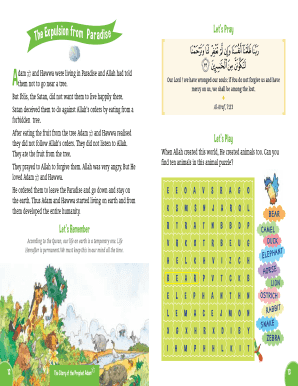 The Expulsion from Paradise
Adam and Hawwa were living in Paradise and Allah had told
them not to go near a tree.
But Iblis, the Satan, did not want them to live happily there.
Satan deceived them to do against Allah's orders by eating from a
forbidden tree.
After eating the fruit from the tree Adam and Hawwa realised
they did not follow Allah's orders. They did not listen to Allah.
They ate the fruit from the tree.
They prayed to Allah to forgive them. Allah was very angry. But He
loved Adam and Hawwa.
He ordered them to leave the Paradise and go down and stay on
the earth. Thus Adam and Hawwa started living on earth and from
them developed the entire humanity.
Let's Remember
According to the Quran, our life on earth is a temporary one. Life
Hereafter is permanent. We must keep this in our mind all the time.
The Story of the Prophet Adam
Let's Pray
رَبَّنَا ظَلَمْنَا أَنفُسَنَا وَإِن لَّمْ تَغْفِرْ لَنَا وَتَرْحَمْنَا
لَنَكُونَنَّ مِنَ الْخَاسِرِينَ
Our Lord! we have wronged our souls: If You do not forgive us and have
mercy on us, we shall be among the lost.
Al-Araf, 7:23
Let's Play
When Allah created this world, He created animals too. Can you
find ten animals in this animal puzzle?
E L E P H A N T H N
BEAR
CAMEL
DUCK
ELEPHANT
HORSE
LION
OSTRICH
RABBIT
SNAKE
ZEBRA